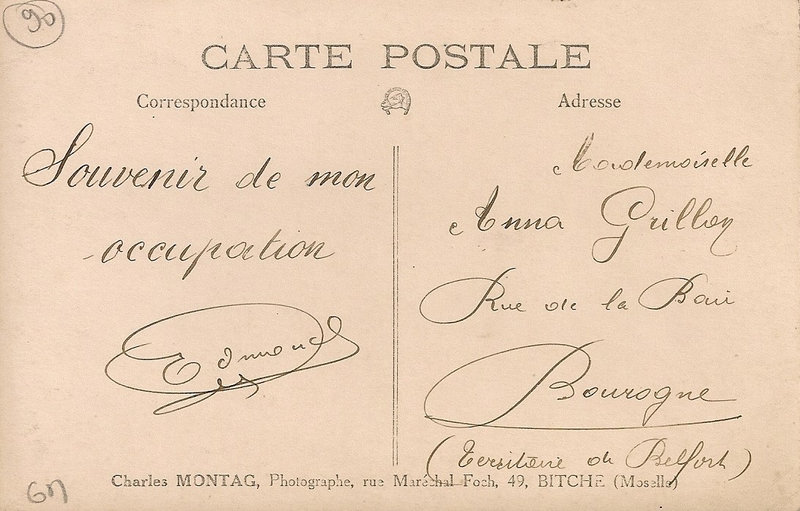 90
CARTE POSTALE
Correspondance
Adresse
Souvenir de mon
occupation
Edmond
Mademoiselle
Anna Grillon
Rue de la
Bourogne
(Territoire de Belfort)
Charles MONTAG, Photographe, rue Maréchal Foch, 49, BITCHE (Moselle)